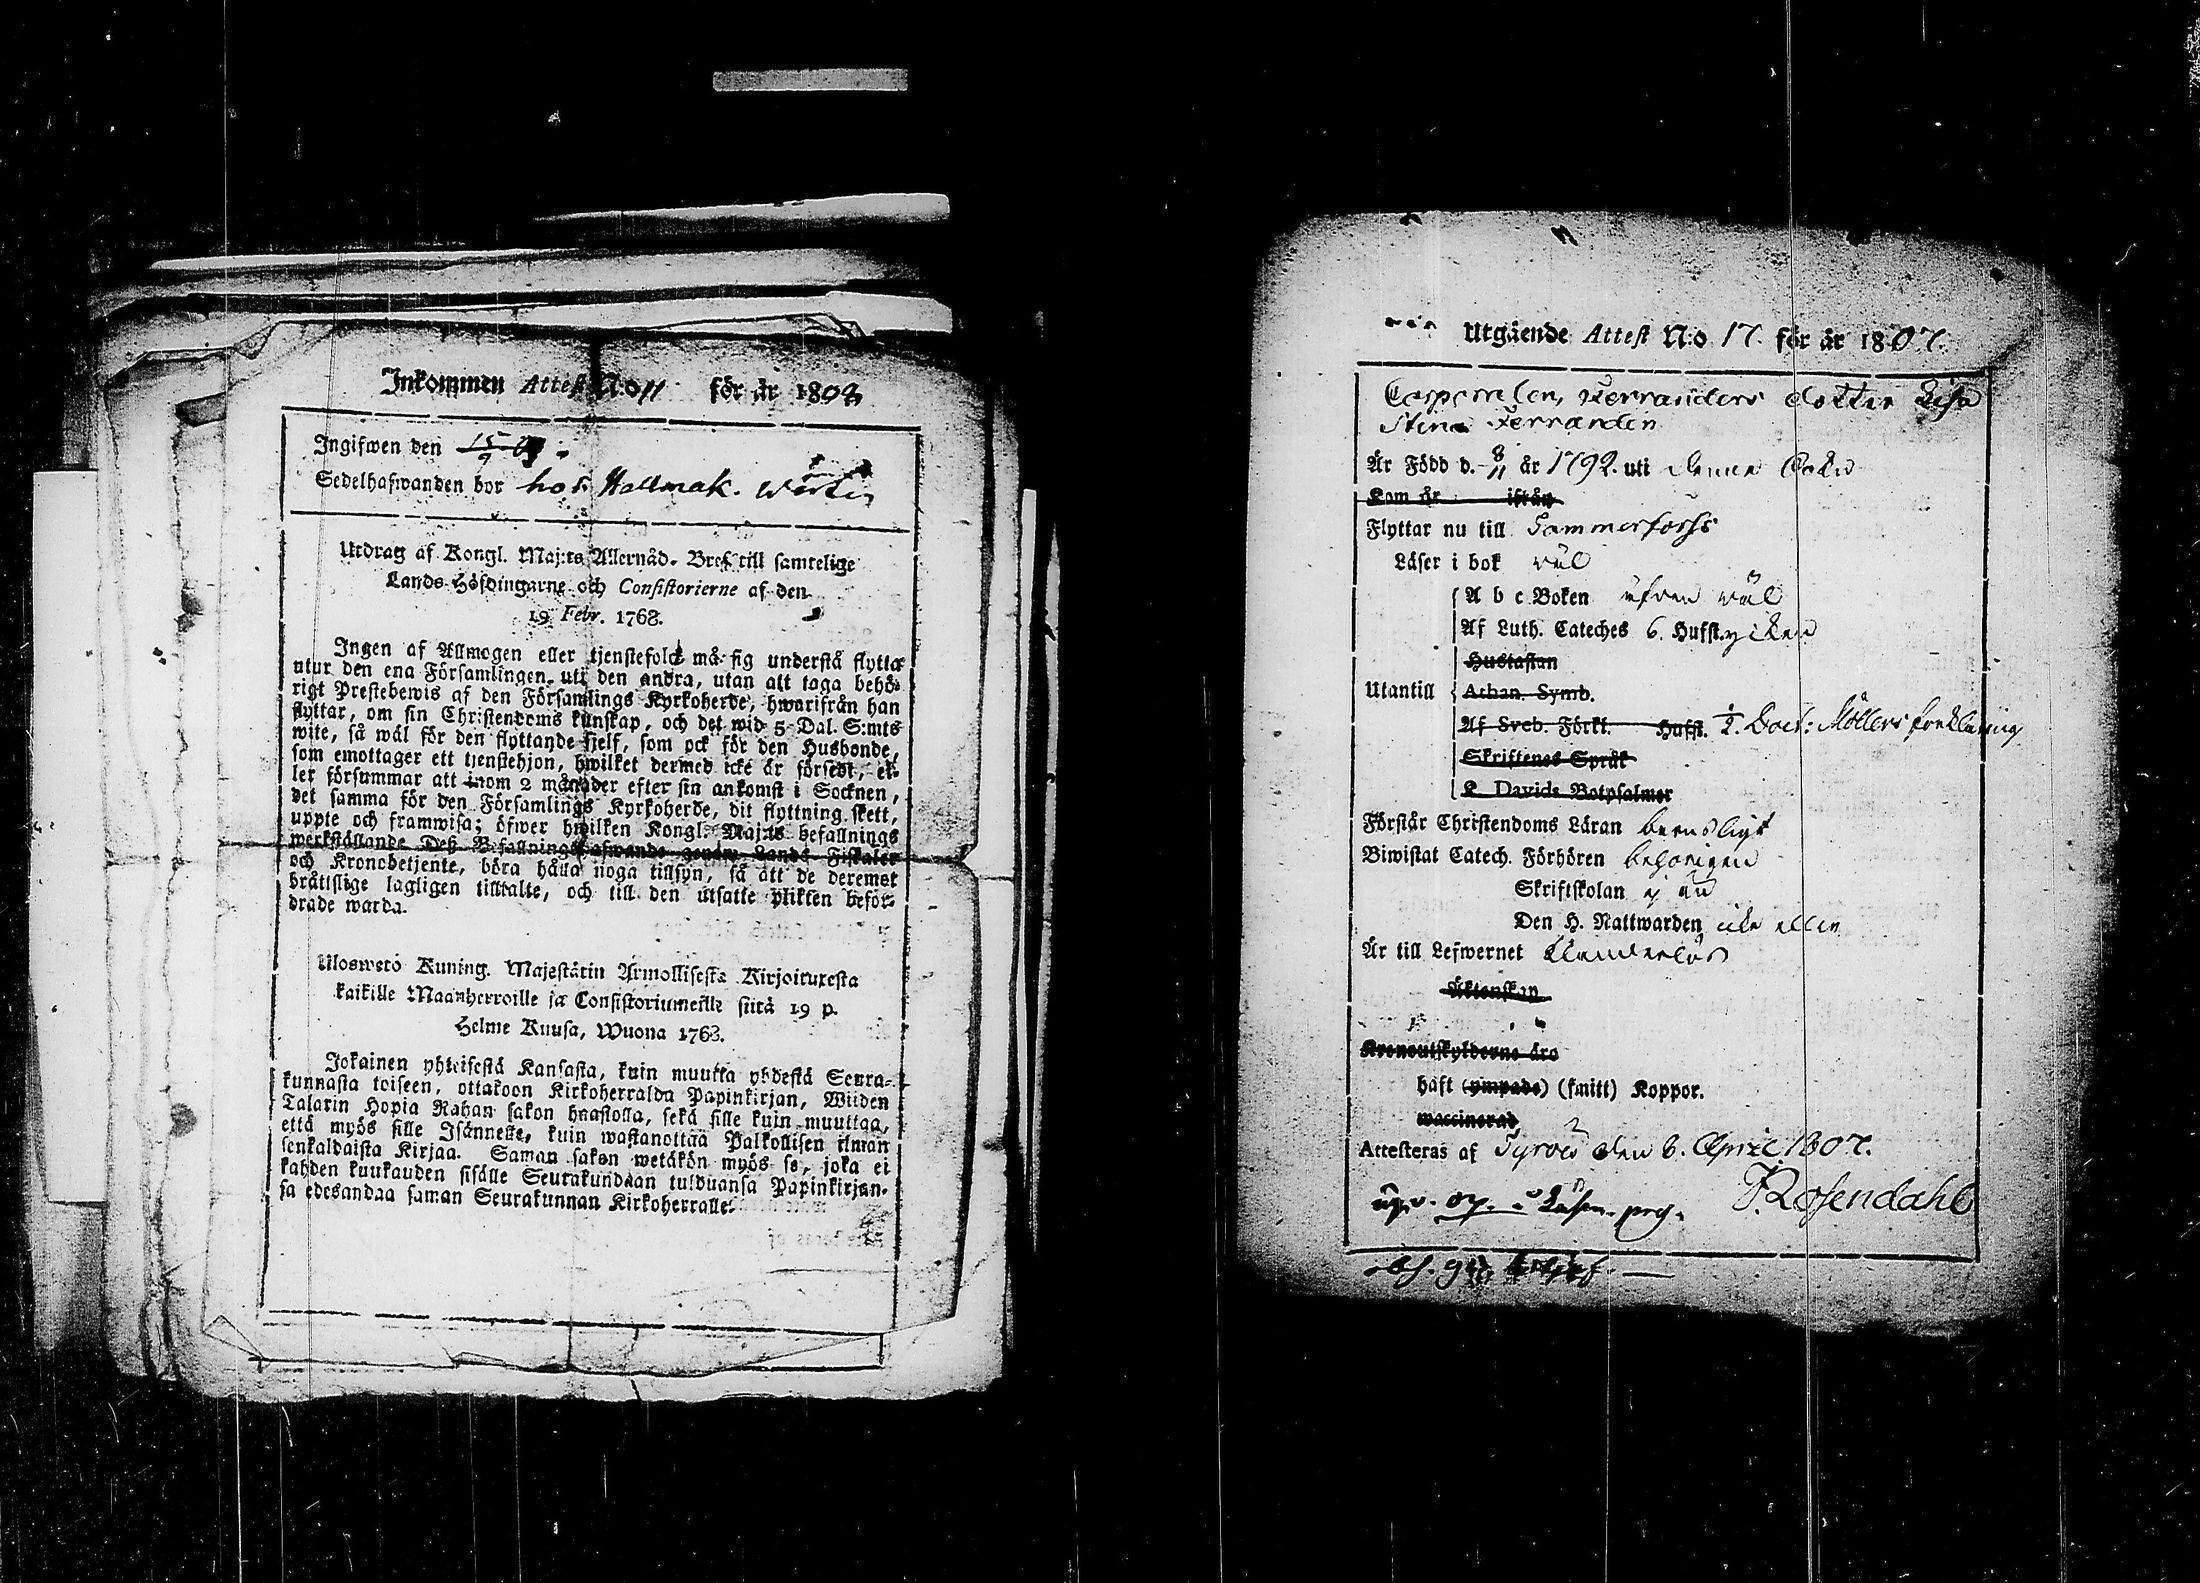 Inkommen Attest N:o 11 för år 1808
Ingifwen den 15/9 08.
Sedelhafwanden bor hos Hallmak.
Utdrag af Kongl. Maj:ts Allernåd. Bref till samtelige
Lands-Höfdingarne och Consistorierne af den
19 Febr. 1768.
Ingen af Allmogen eller tjenstefolck må sig understå flytta
utur den ena Församlingen uti den andra, utan att taga behö-
rigt Prestebewis af den Församlings Kyrkoherde, hwarifrån han
flyttar, om sin Christendoms kunskap, och det wid 5 Dal. S:mts
wite, så wäl för den flyttande sjelf, som ock för den Husbonde,
som emottager ett tjenstehjon, hwilket dermed icke är försedt, el-
ler försummar att inom 2 månader efter sin ankomst i Socknen,
det samma för den Församlings Kyrkoherde, dit flyttning skett,
uppte och framwisa; öfwer hwilken Kongl. Maj:ts befallnings
werkställande Deß Befallningshafwande genom Lands Fiskaler
och Kronobetjente, böra hålla noga tillsyn, så att de deremot
bråttslige lagligen tilltalte, och till den utsatte plikten beför-
drade warda.
Ulosweto Kuning. Majestätin Armollisesta Kirjoituxesta
kaikille Maanherroille ja Consistoriumeille siitä 19 p.
Helme Kuusa, Wuona 1768.
Jokainen yhteisestä Kansasta, kuin muutta yhdestä Seura-
kunnasta toiseen, ottakoon Kirkoherralda Papinkirjan, Wiiden
Talarin Hopia Rahan sakon haastolla, sekä sille kuin muuttaa,
että myös sille Isännelle, kuin wastanottaa Palkollisen ilman
senkaldaista Kirjaa. Saman sakon wetäkön myös se, joka ei
kahden kuukauden sisälle Seurakundaan tulduansa Papinkirjan-
sa edesandaa saman Seurakunnan Kirkoherralle.
Utgående Attest N:o 17. för år 1807.
Corporalen, Ferranders dotter Lisa
Stina Ferrandin
Är Född d. 8/11 år 1792. uti denne Sokn
Kom år ifrån
Flyttar nu till Tammerforss
Läser i bok väl
A b c Boken äfven väl
Af Luth. Cateches 6. Hufst.ycken
Hustaflan
Utantill Athan. Symb.
Af Sveb. Förkl. Hufst. 1/2. Doct: Möllers forklaring
Skriftenes Språk
K. Davids Botpsalmer
Förstår Christendoms Läran
Biwistat Catech. Förhören behörigen
Skriftskolan ej än
Den H. Nattwarden icke eller
Är till Lefwernet klanderlös
Äktenskap
Kronoutskylderne äro
haft (ympade) (smitt) Koppor.
waccinerad,
Attesteras af Tyrvis den 6. April 1807.
J. Rosendahl